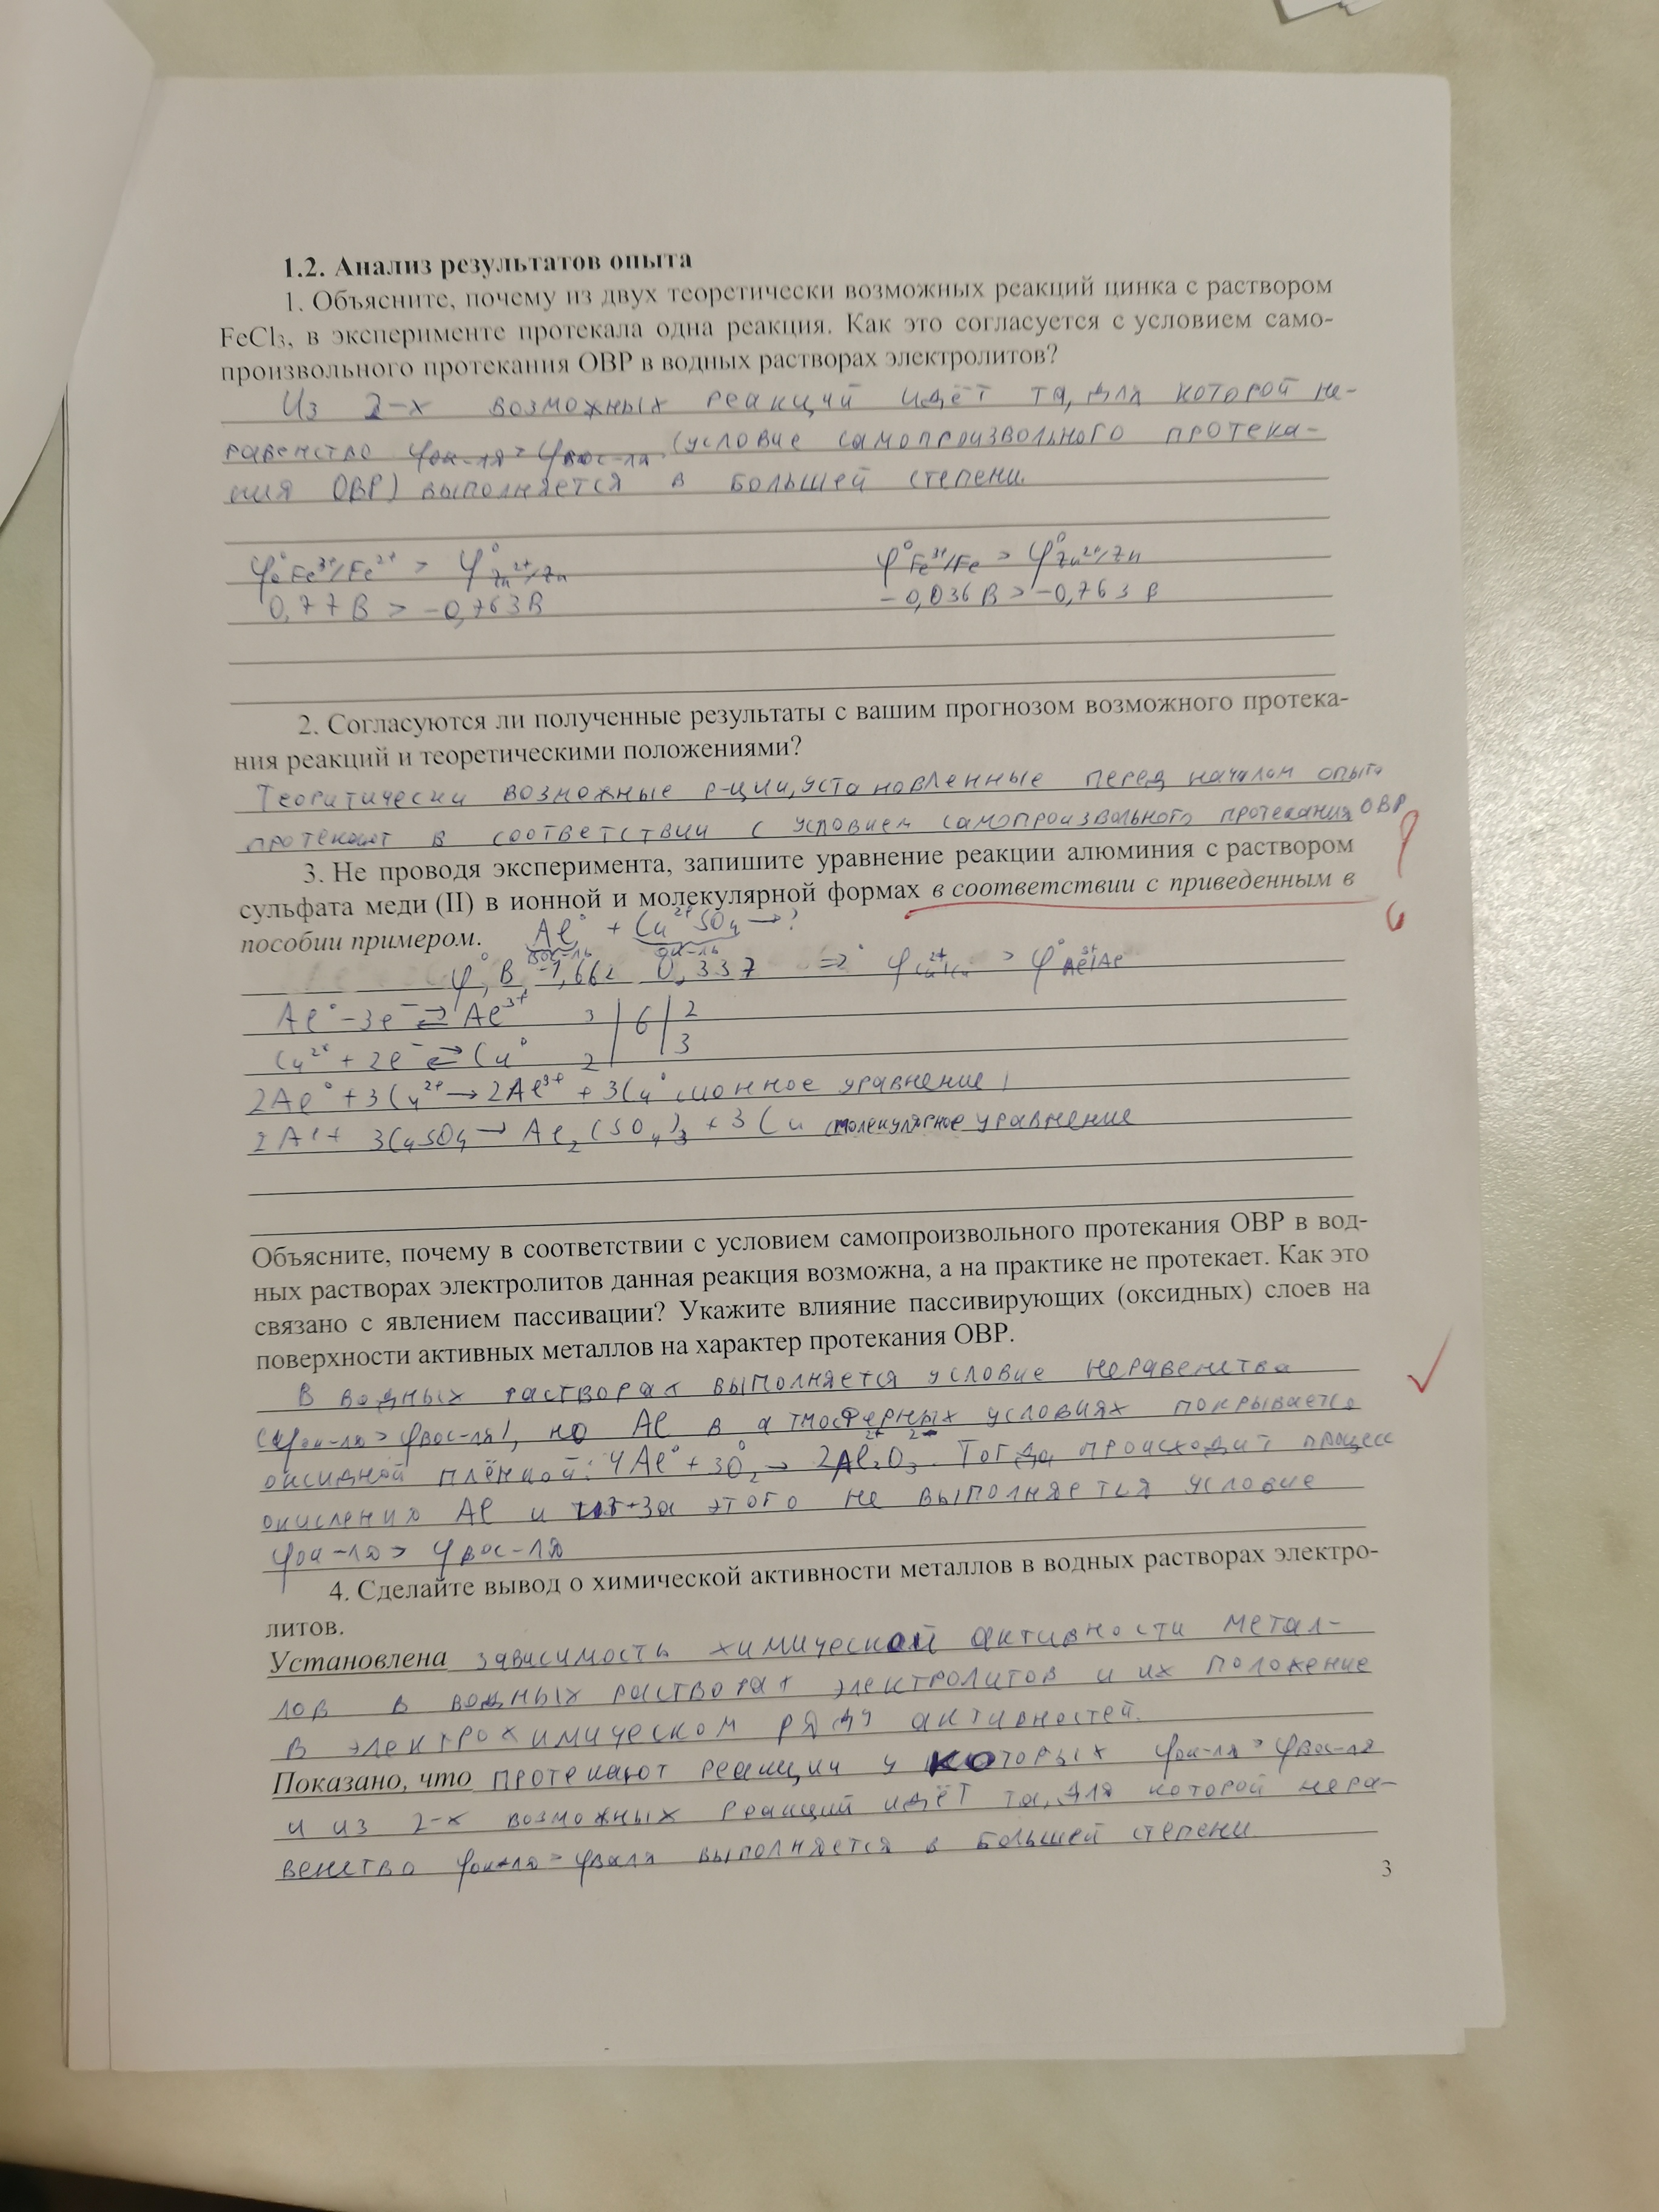 1.2. Анализ результатов опыта
1. Объясните, почему из двух теоретически возможных реакций цинка с раствором
FeCl₃, в эксперименте протекала одна реакция. Как это согласуется с условием само-
произвольного протекания ОВР в водных растворах электролитов?
Из 2-х возможных реакций идёт та, для которой не-
равенство φок-ля > φвос-ля (условие самопроизвольного протека-
ния ОВР) выполняется в большей степени.
φ°Fe³⁺/Fe²⁺ > φ°Zn²⁺/Zn φ°Fe³⁺/Fe > φ°Zn²⁺/Zn
0,77 В > -0,763 В -0,036 В > -0,763 В
2. Согласуются ли полученные результаты с вашим прогнозом возможного протека-
ния реакций и теоретическими положениями?
Теоритически возможные р-ции, установленные перед началом опыта
протекают в соответствии с условием самопроизвольного протекания ОВР
3. Не проводя эксперимента, запишите уравнение реакции алюминия с раствором
сульфата меди (II) в ионной и молекулярной формах в соответствии с приведенным в
пособии примером. Al° + Cu²⁺SO₄ → ?
вос-ль ок-ль
φ°, В -1,662 0,337 => φ°Cu²⁺/Cu > φ°Al³⁺/Al
Al° - 3e⁻ ⇄ Al³⁺ 3 | 6 | 2
Cu²⁺ + 2e⁻ ⇄ Cu° 2 | | 3
2Al° + 3Cu²⁺ → 2Al³⁺ + 3Cu° ионное уравнение
2Al + 3CuSO₄ → Al₂(SO₄)₃ + 3Cu молекулярное уравнение
Объясните, почему в соответствии с условием самопроизвольного протекания ОВР в вод-
ных растворах электролитов данная реакция возможна, а на практике не протекает. Как это
связано с явлением пассивации? Укажите влияние пассивирующих (оксидных) слоев на
поверхности активных металлов на характер протекания ОВР.
В водных растворах выполняется условие неравенства
(φок-ля > φвос-ля), но Al в атмосферных условиях покрывается
оксидной плёнкой: 4Al° + 3O₂° → 2Al₂O₃. Тогда происходит процесс
окисления Al и из-за этого не выполняется условие
φок-ля > φвос-ля
4. Сделайте вывод о химической активности металлов в водных растворах электро-
литов.
Установлена зависимость химической активности метал-
лов в водных растворах электролитов и их положение
в электрохимическом ряду активностей.
Показано, что протекают реакции у которых φок-ля > φвос-ля
и из 2-х возможных реакций идёт та, для которой нера-
венство φок-ля > φвос-ля выполняется в большей степени
3